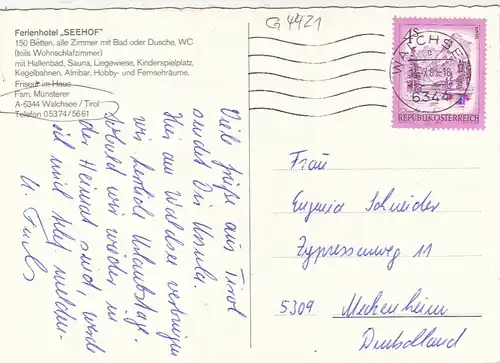 Ferienhotel „SEEHOF"
150 Betten, alle Zimmer mit Bad oder Dusche, WC
(teils Wohnschlafzimmer)
mit Hallenbad, Sauna, Liegewiese, Kinderspielplatz,
Kegelbahnen, Almbar, Hobby- und Fernsehräume.
Friseur im Haus
Fam. Münsterer
A-6344 Walchsee / Tirol
Telefon 05374/5661
G 4421
4S
REPUBLIK ÖSTERREICH
WALCHSEE
6344
Viele Grüße aus Tirol
sendet Dir Ursula.
Hier am Walchsee verbringen
wir herrliche Urlaubstage.
Sobald wir wieder in
der Heimat sind, werde
ich mich melden.
U. Fuchs
Frau
Eugenia Schneider
Zypressenweg 11
5309 Meckenheim
Deutschland